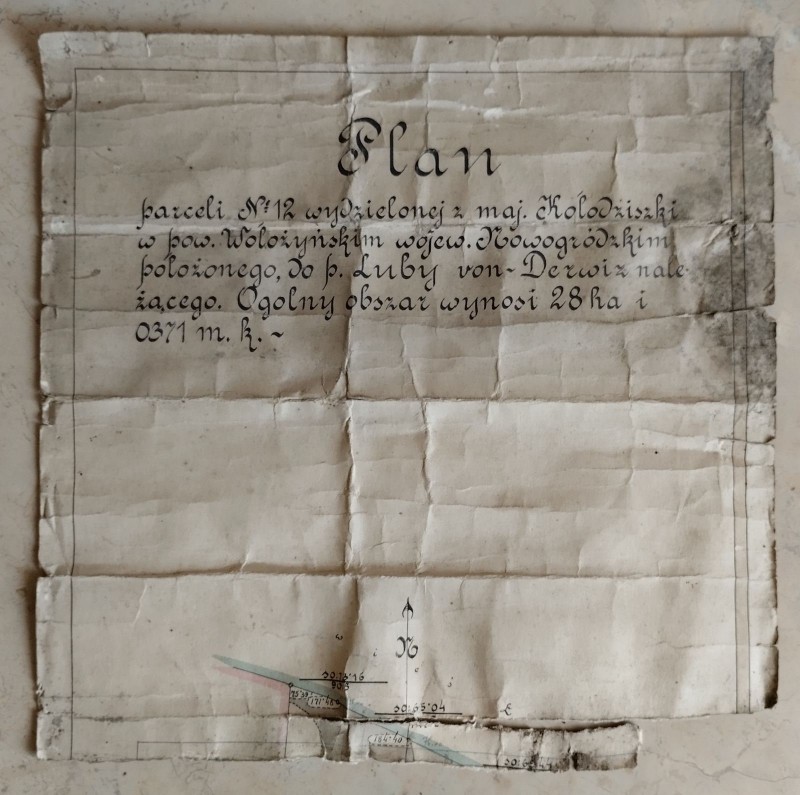 Plan
parceli № 12 wydzielonej z maj. Kołodziszki
w pow. Wołożyńskim wojew. Nowogródzkim
położonego, do p. Luby von-Derwiz nale-
żącego. Ogolny obszar wynosi 28 ha i
0371 m. k. ~
N